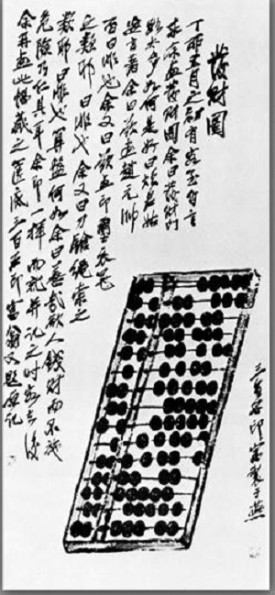 發財圖
丁卯五月之初有客至自言
求余画發財圖余曰發財門
路太多如何是好曰煩君姑
妄言著余曰欲画趙元帥
否曰非也余又曰欲画印璽衣冠
之類耶曰非也余又曰刀鎗繩索之
類耶曰非也算盤何如余曰善哉欲人錢財而不施
危險乃仁具耳余即一揮而就并記之時客去後
余再画此幅藏之篋底三百石印富翁又題原記
三百石印富翁製于燕